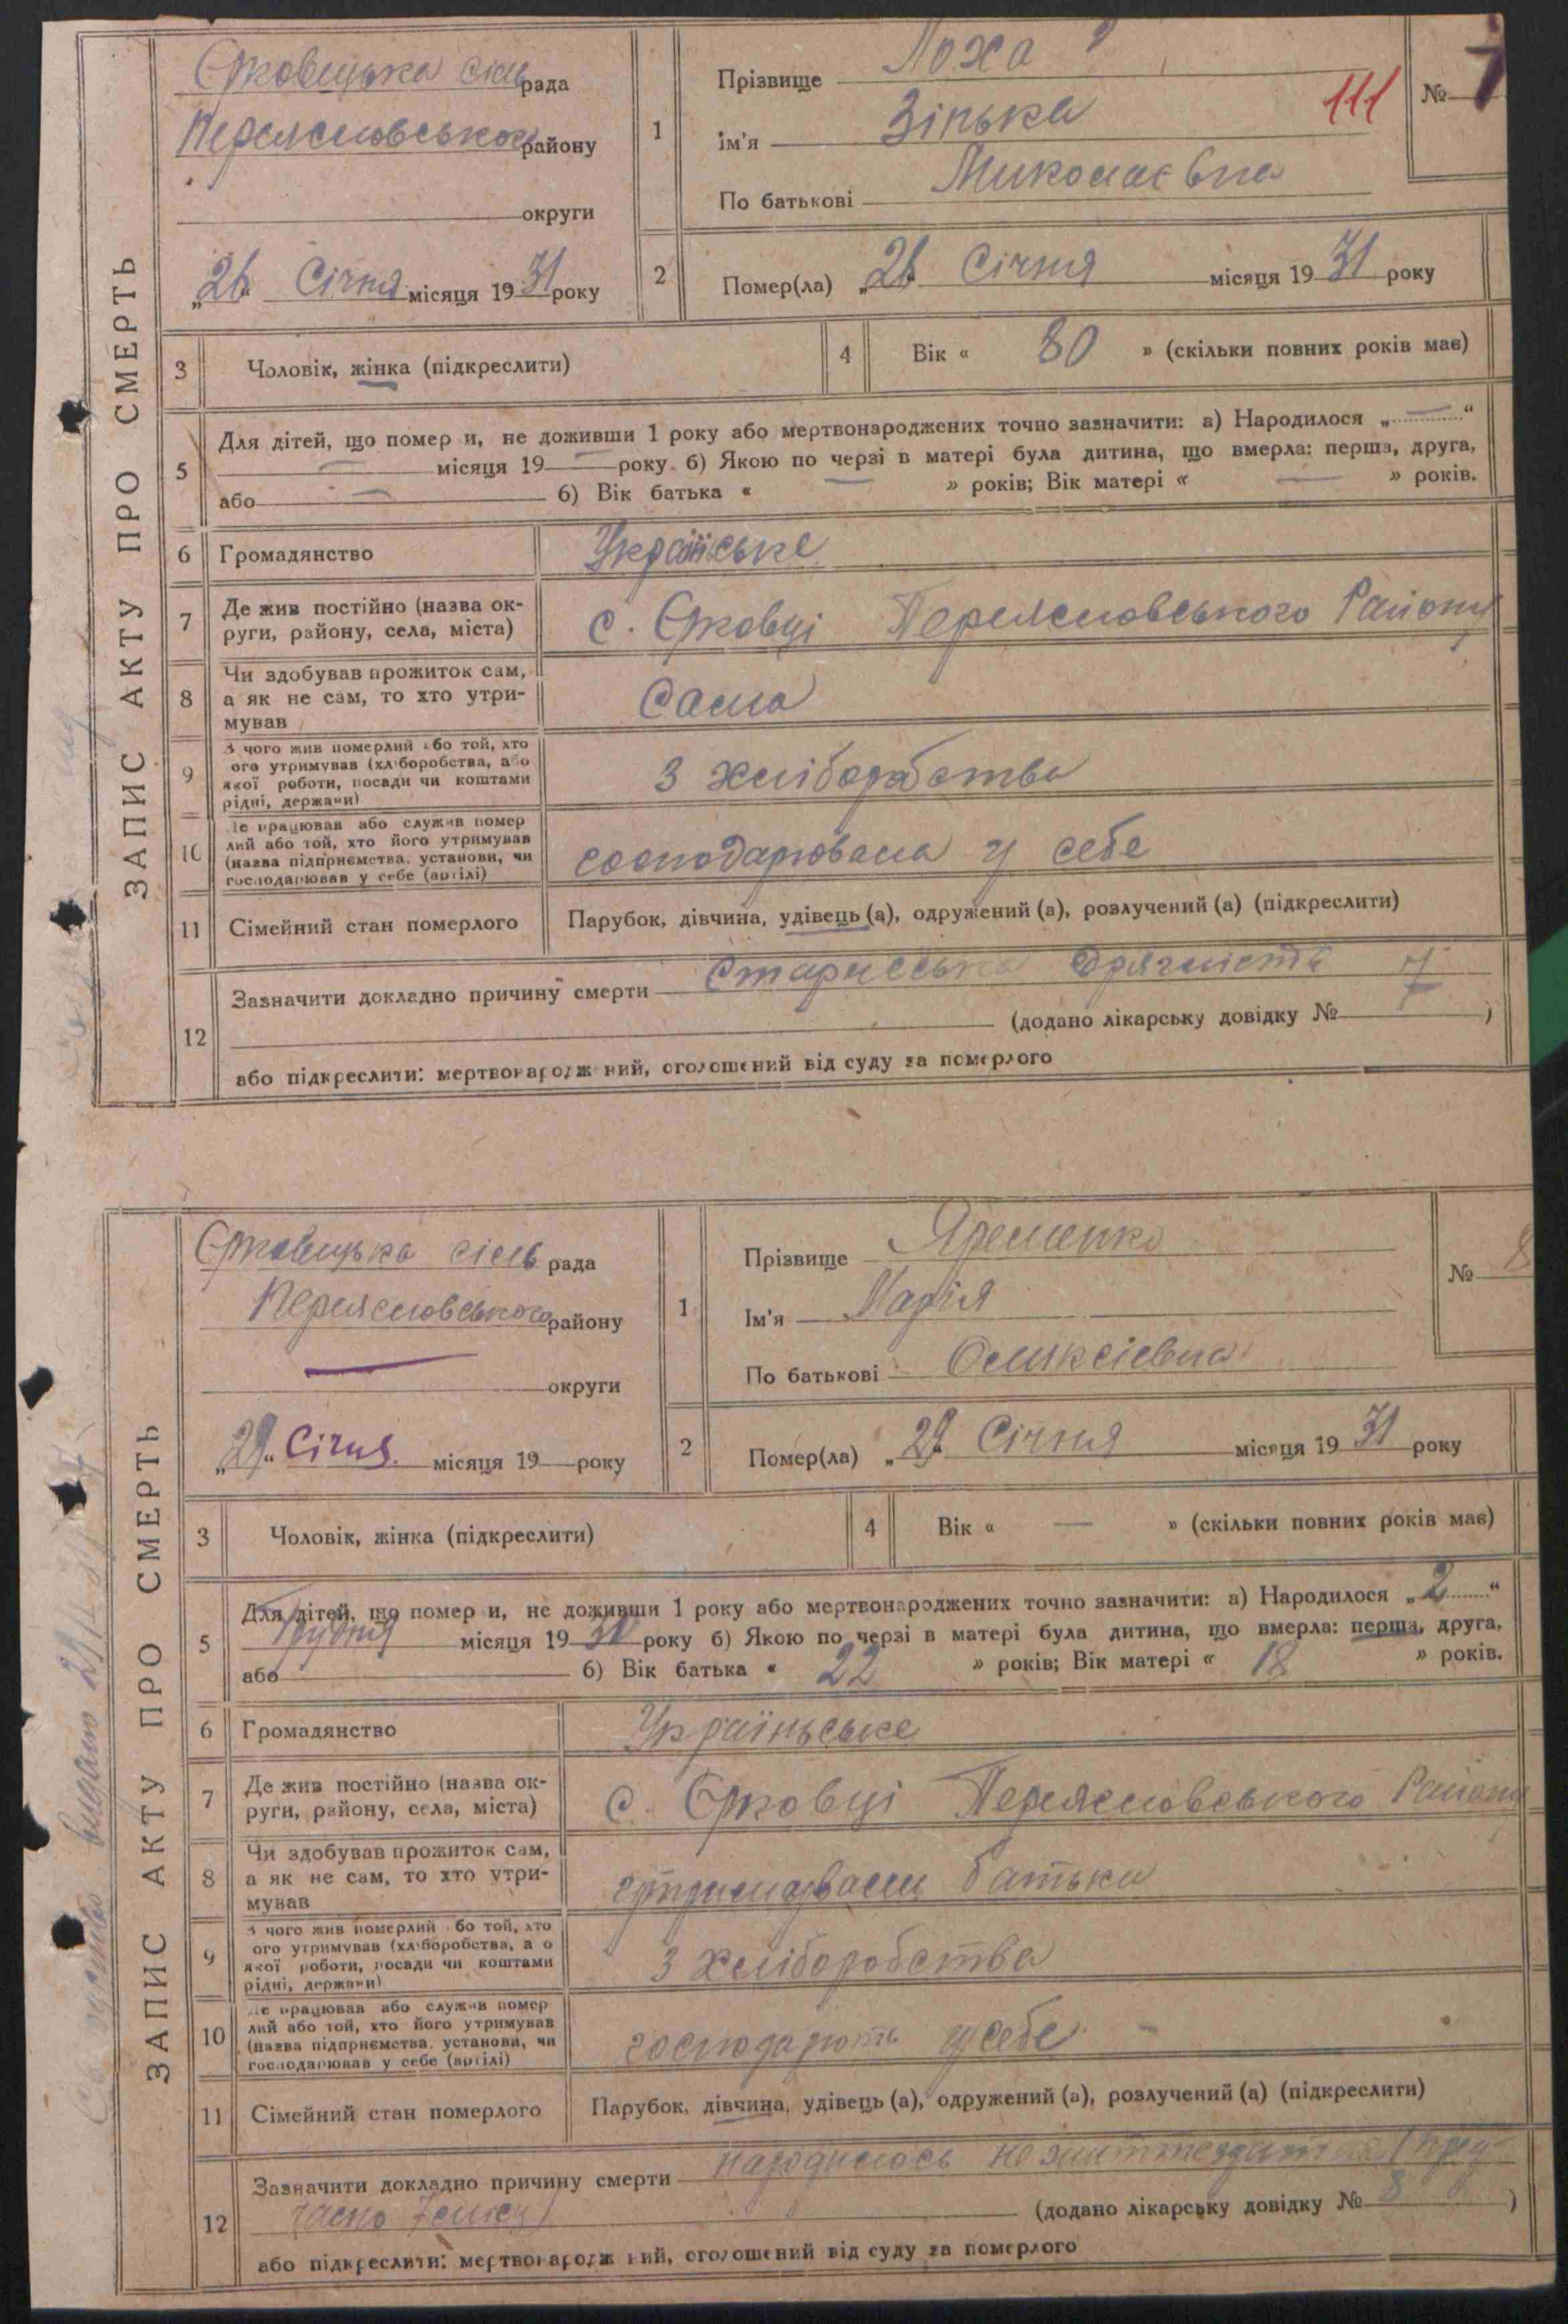 ЗАПИС АКТУ ПРО СМЕРТЬ
Єрковецька сіль рада
Переясловського району
округи
„26“ Січня місяця 1931 року
1
Прізвище Лоха
Ім'я Зінька
По батькові Миколаєвна
111
№ 7
2
Помер(ла) „26 Січня місяця 1931 року
3 Чоловік, жінка (підкреслити)
4 Вік « 80 » (скільки повних років має)
5 Для дітей, що помер и, не доживши 1 року або мертвонароджених точно зазначити: а) Народилося „ — “
— місяця 19 — року. б) Якою по черзі в матері була дитина, що вмерла: перша, друга,
або — б) Вік батька « — » років; Вік матері « — » років.
6 Громадянство Українське
7 Де жив постійно (назва ок-
руги, району, села, міста) с. Єрковці Переясловського Району
8 Чи здобував прожиток сам,
а як не сам, то хто утри-
мував Сама
9 З чого жив померлий або той, хто
ого утримував (хліборобства, або
якої роботи, посади чи коштами
рідні, держави) З хліборобства
10 Де працював або служив помер
лий або той, хто його утримував
(назва підприємства, установи, чи
господарював у себе (артілі) господарювала у себе
11 Сімейний стан померлого Парубок, дівчина, удівець (а), одружений (а), розлучений (а) (підкреслити)
12 Зазначити докладно причину смерти Старечська дряхлість
(додано лікарську довідку № 7 )
або підкреслити: мертвонароджений, оголошений від суду за померлого
ЗАПИС АКТУ ПРО СМЕРТЬ
Єрковецька сіль рада
Переясловського району
округи
„29“ Січня. місяця 19 року
1
Прізвище Яременко
Ім'я Марія
По батькові Оликсіевна
№ 8
2
Помер(ла) „29 Січня місяця 1931 року
3 Чоловік, жінка (підкреслити)
4 Вік « — » (скільки повних років має)
5 Для дітей, що помер и, не доживши 1 року або мертвонароджених точно зазначити: а) Народилося „2“
Грудня місяця 1930 року б) Якою по черзі в матері була дитина, що вмерла: перша, друга,
або б) Вік батька « 22 » років; Вік матері « 18 » років.
6 Громадянство Україньське
7 Де жив постійно (назва ок-
руги, району, села, міста) с. Єрковці Переясловського Району
8 Чи здобував прожиток сам,
а як не сам, то хто утри-
мував утримували батьки
9 З чого жив померлий або той, хто
ого утримував (хліборобства, а о
якої роботи, посади чи коштами
рідні, держави) З хліборобства
10 Де працював або служив помер
лий або той, хто його утримував
(назва підприємства, установи, чи
господарював у себе (артілі) господарють у себе
11 Сімейний стан померлого Парубок, дівчина, удівець (а), одружений (а), розлучений (а) (підкреслити)
12 Зазначити докладно причину смерти народилось (перед-
часно 7 місяц)
(додано лікарську довідку № 8 )
або підкреслити: мертвонароджений, оголошений від суду за померлого